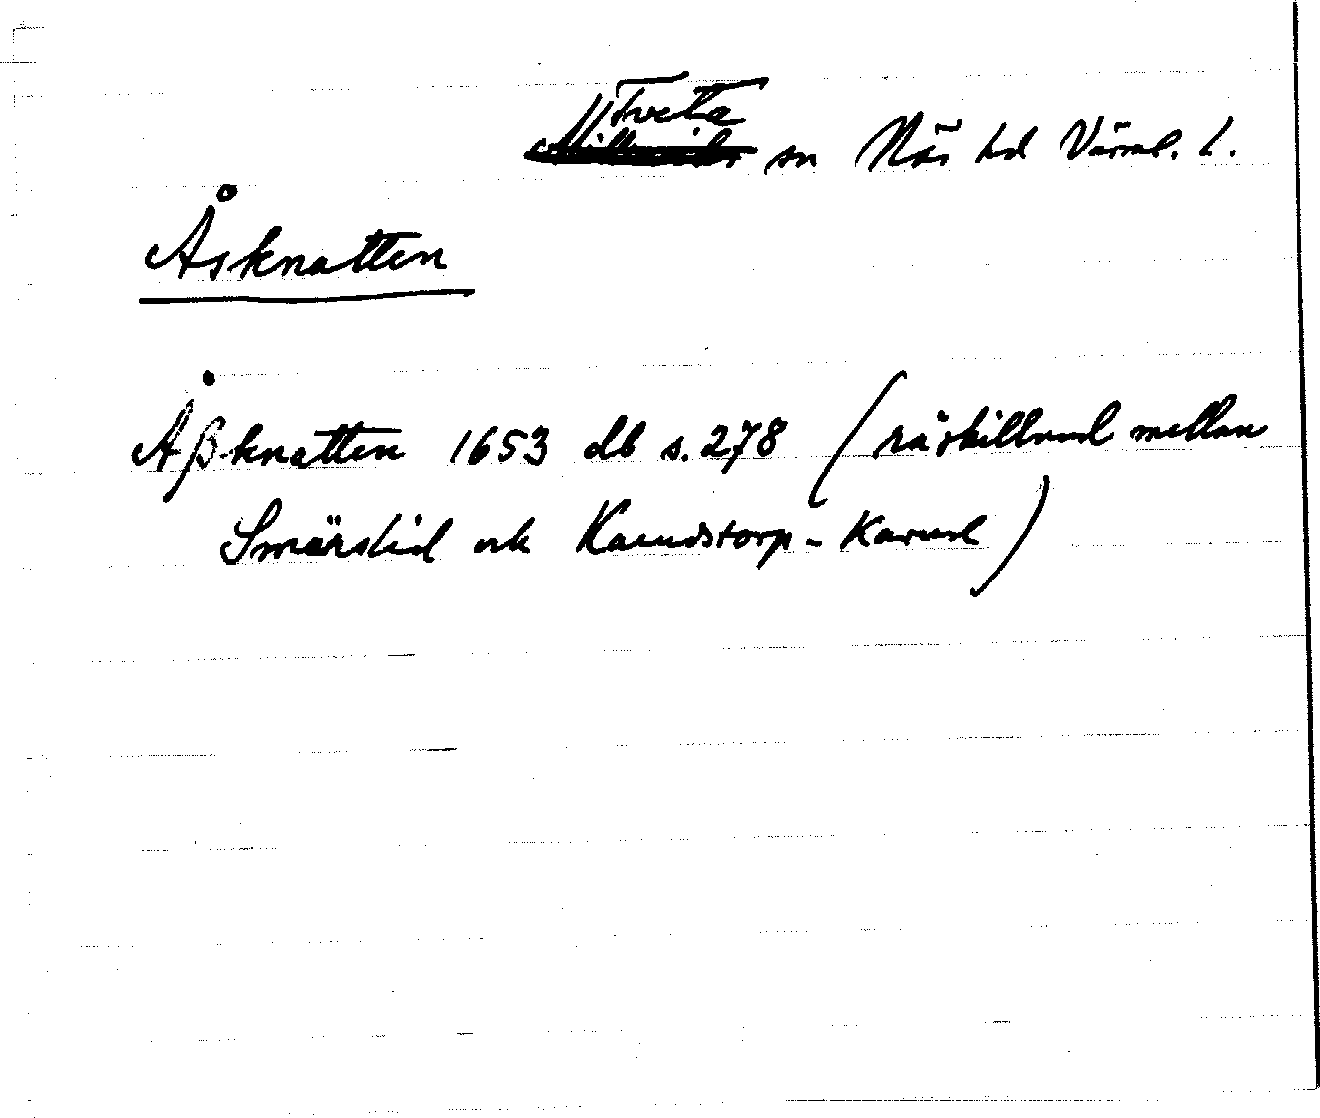 Tveta
sn Näs hd Värml. l.
Åsknatten
Åßknatten 1653 db s. 278 (råskillnad mellan
Smärslid och Kaundstorp - Karud)